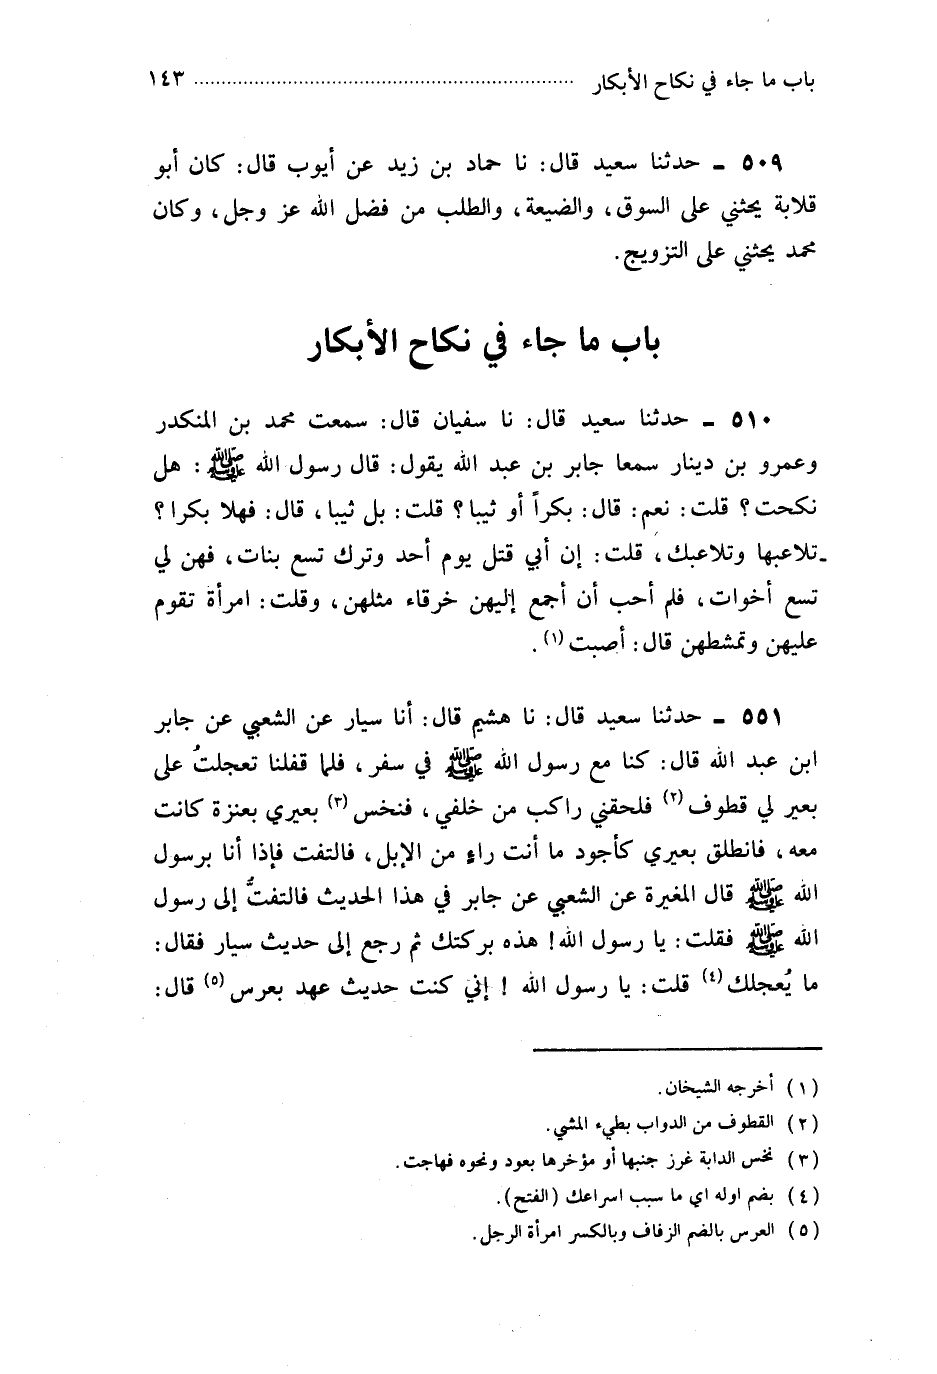 باب ما جاء في نكاح الأبكار ........................................................................ ١٤٣
٥٠٩ ـ حدثنا سعيد قال: نا حماد بن زيد عن أيوب قال: كان أبو
قلابة يحثني على السوق، والضيعة، والطلب من فضل الله عز وجل، وكان
محمد يحثني على التزويج.
باب ما جاء في نكاح الأبكار
٥١٠ ـ حدثنا سعيد قال: نا سفيان قال: سمعت محمد بن المنكدر
وعمرو بن دينار سمعا جابر بن عبد الله يقول: قال رسول الله ﷺ: هل
نكحت؟ قلت: نعم: قال: بكراً أو ثيبا؟ قلت: بل ثيبا، قال: فهلا بكرا؟
ـ تلاعبها وتلاعبك، قلت: إن أبي قتل يوم أحد وترك تسع بنات، فهن لي
تسع أخوات، فلم أحب أن أجمع إليهن خرقاء مثلهن، وقلت: امرأة تقوم
عليهن وتمشطهن قال: أصبت (١).
٥٥١ ـ حدثنا سعيد قال: نا هشيم قال: أنا سيار عن الشعبي عن جابر
ابن عبد الله قال: كنا مع رسول الله ﷺ في سفر، فلما قفلنا تعجلتُ على
بعير لي قطوف (٢) فلحقني راكب من خلفي، فنخس (٣) بعيري بعنزة كانت
معه، فانطلق بعيري كأجود ما أنت راءٍ من الإبل، فالتفت فإذا أنا برسول
الله ﷺ قال المغيرة عن الشعبي عن جابر في هذا الحديث فالتفتُّ إلى رسول
الله ﷺ فقلت: يا رسول الله! هذه بركتك ثم رجع إلى حديث سيار فقال:
ما يُعجلك (٤) قلت: يا رسول الله ! إني كنت حديث عهد بعرس (٥) قال:
(١) أخرجه الشيخان.
(٢) القطوف من الدواب بطيء المشي.
(٣) نخس الدابة غرز جنبها أو مؤخرها بعود ونحوه فهاجت.
(٤) بضم اوله اي ما سبب اسراعك (الفتح).
(٥) العرس بالضم الزفاف وبالكسر امرأة الرجل.